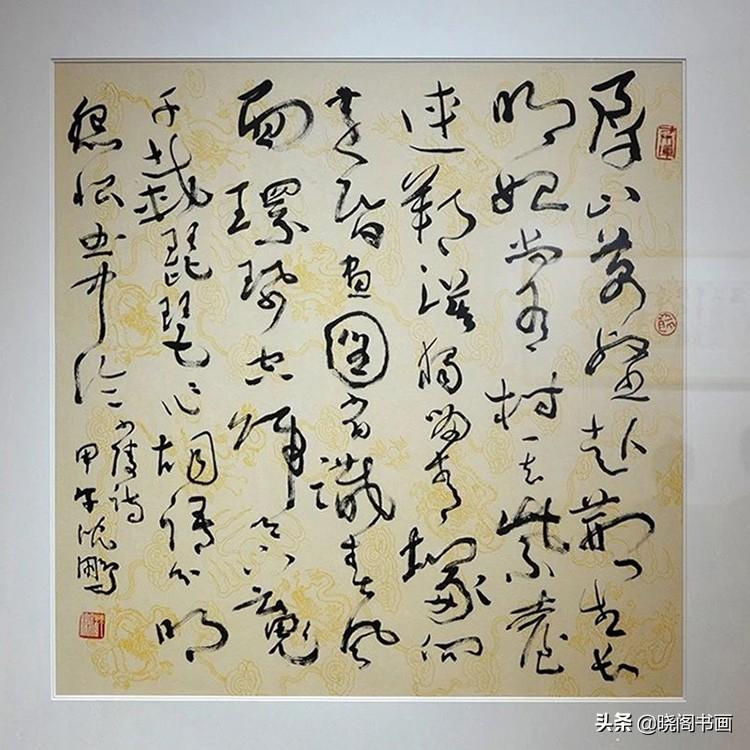 群山萬壑赴荆门生长
明妃尚有村一去紫臺
连朔漠独留青冢向
黄昏画图省识春风
面環珮空归夜月魂
千载琵琶作胡语分明
怨恨曲中论
少陵诗
甲午沈鹏
头条 @晓阁书画